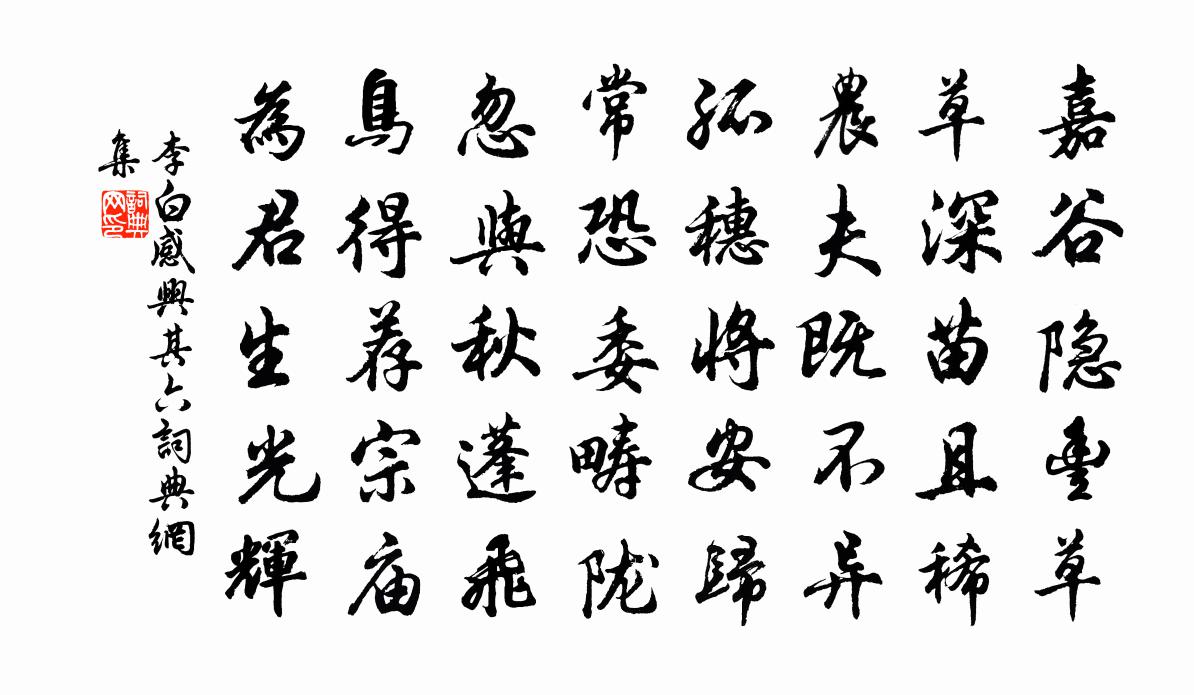 嘉谷隐豐草
草深苗且稀
農夫既不异
孤穗將安歸
常恐委疇陇
忽與秋蓬飛
鳥得荐宗庙
為君生光輝
李白感興其六詞典網
集
詞典
网印